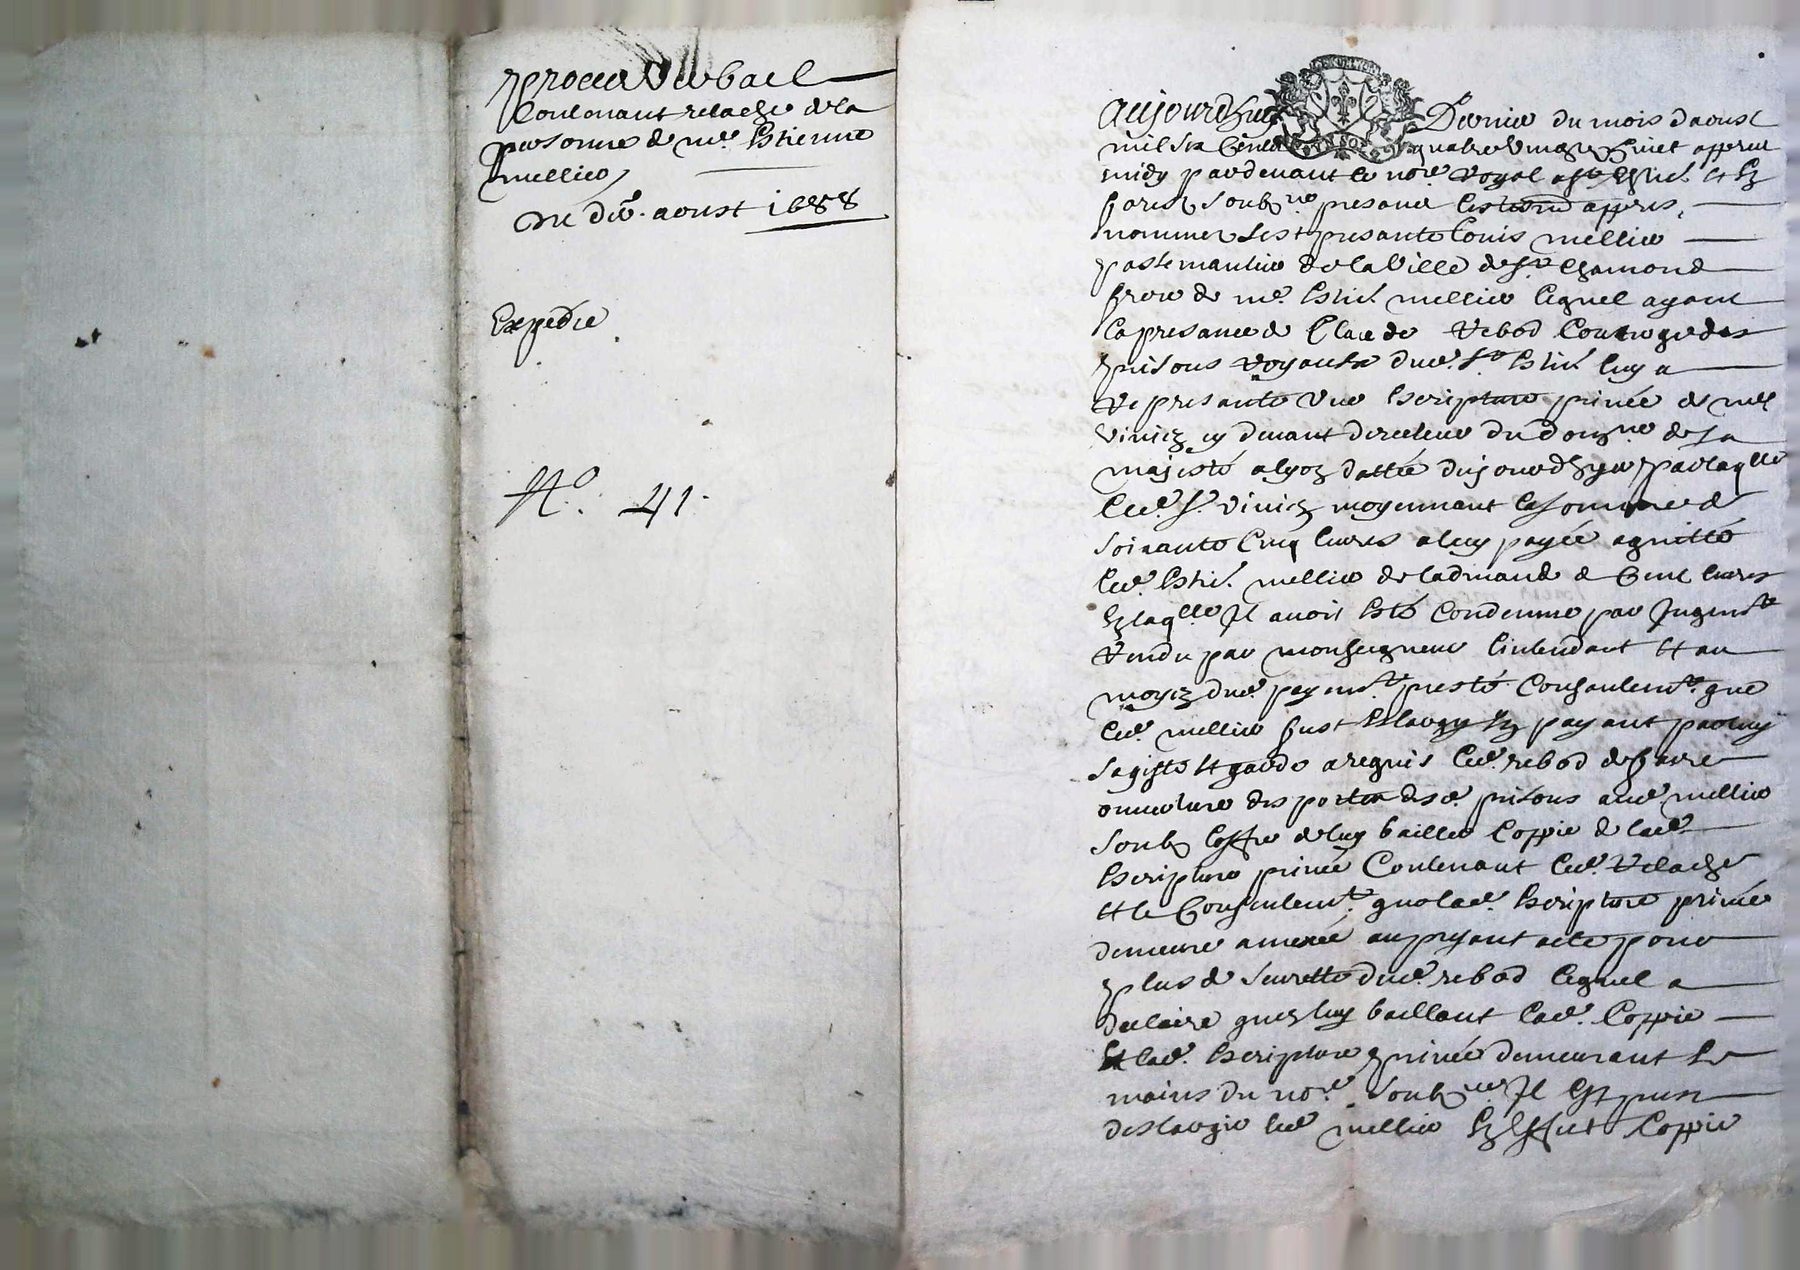 proces verbael
Contenant relache de la
personne de me. Estienne
mellier
Du der. aoust 1688
Expedie
No. 41.
aujourdhuy Dernier du mois daoust
mil six cens quatre vingtz huict appres
midy pardevant le nore. Royal a St Esne. et
forestz soubzne presance les tesmoins appres
nommes sest presante Louis mellier
passemantier de la ville de St. chamond
frere de me. Estne. mellier lequel ayant
la presance de Claude Rebod Concierge des
prisons royaulx dud. St. Estne. luy a
Represante une Escripture privée de me
Viniez cy devant directeur du domne de sa
majesté a lyon dattée dujourdhyer par laqlle
led. Sr. Viniez moyennant la somme de
soixante cinq livres a luy payée a quitté
led. Estne. mellier de la demande de Cent livres
En laqlle Il avoit Esté Condemne par Jugemt
Rendu par monseigneur lintendant et au
moyen dud. payemt. presté Consantemt. que
led. mellier fust Eslargy En payant par luy
sa giste et garde a requis led. rebod de faire
ouverture des portes desd. prisons aud. mellier
soubz loffre de luy bailler Coppie de lad.
Escripture privée Contenant led. Relache
et le Consentemt. que lad. Escripture privée
demeure annexée au presant acte pour
plus de seurette dud. rebod lequel a
declaire quen luy baillant lad. Coppie
Et lad. Escripture privée demeurant Es
mains du nore. soubzne Il Est prest
deslargir led. mellier En Effect Coppie